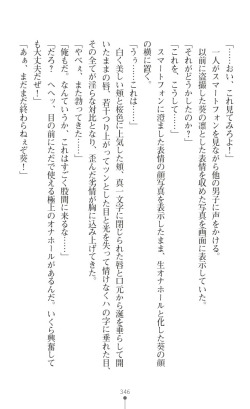 「……おい、これ見てみろよ！」
　一人がスマートフォンを見ながら他の男子に声をかける。
　以前に盗撮した葵の凛とした表情を収めた写真を画面に表示していた。
「それがどうかしたのか？」
「これを、こうして……」
　スマートフォンに澄ました表情の顔写真を表示したまま、生オナホールと化した葵の顔
の横に置く。
「うぅ……これは……」
　白く美しい頬と桜色に上気した頬、真一文字に閉じられた唇と口元から涎を垂らして開
いたままの唇、若干つり上がってツンとした目と光を失って情けなくハの字に垂れた目、
その全てが淫らな対比となり、歪んだ劣情が胸に込み上げてきた。
「やべぇ、また勃ってきた……」
「俺もだ。なんていうか、これはすごく股間に来るな……」
「だろ？　へへッ。目の前にただで使える極上のオナホールがあるんだ。いくら興奮して
も大丈夫だぜ！」
「あぁ、まだまだ終わらねぇぞ葵！」
346